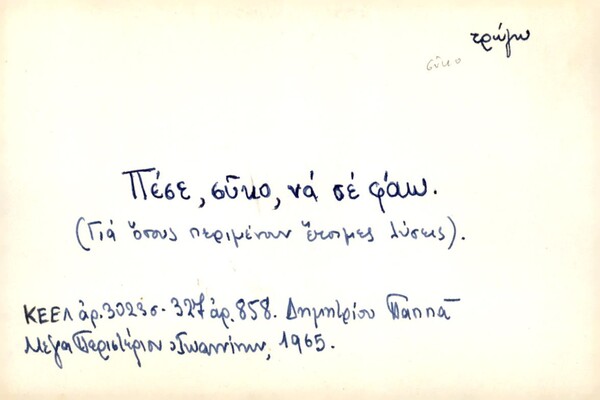 τρώγω
σῦκο
Πέσε, σῦκο, νά σέ φάω.
(Γιά ὅσους περιμένουν ἕτοιμες λύσεις).
ΚΕΕΛ ἀρ. 3023 σ. 327 ἀρ. 858. Δημητρίου Παππᾶ
Μέγα Περιστέριον Ἰωαννίνων, 1965.